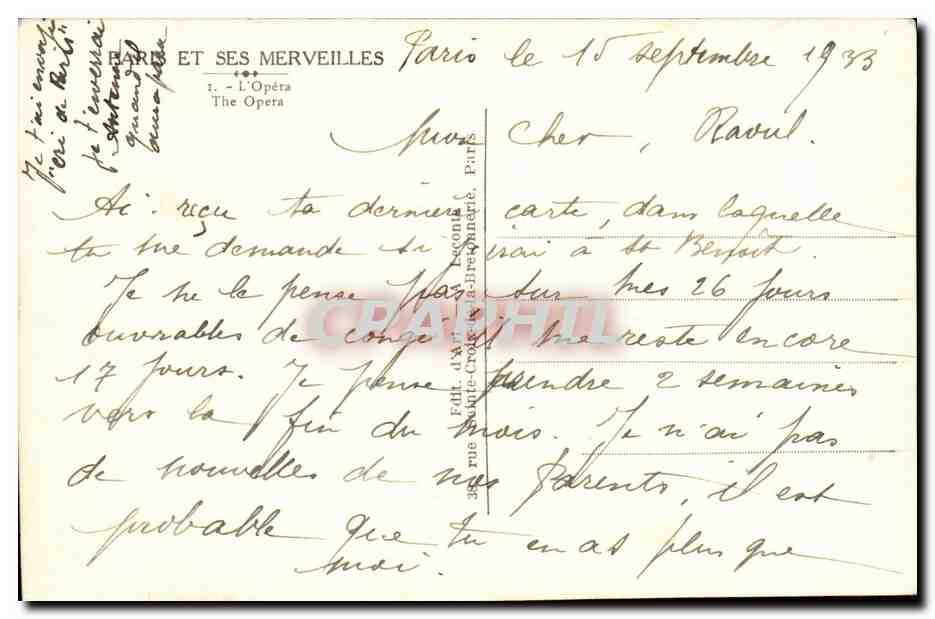 PARIS ET SES MERVEILLES
1. - L'Opéra
The Opera
Paris le 15 septembre 1933
Mon cher, Raoul.
Ai reçu ta dernière carte, dans laquelle
tu me demande si j'irai à St Benoît.
Je ne le pense pas sur mes 26 jours
ouvrables de congé il me reste encore
17 jours. Je pense prendre 2 semaines
vers la fin du mois. Je n'ai pas
de nouvelles de nos Parents, il est
probable que tu en as plus que
moi.
Je t'ai envoyé
"cri de Paris"
je t'enverrai
quand
Edit. d'Art A. Leconte
38 rue Sainte-Croix-de-la-Bretonnerie, Paris
CRAPHIL